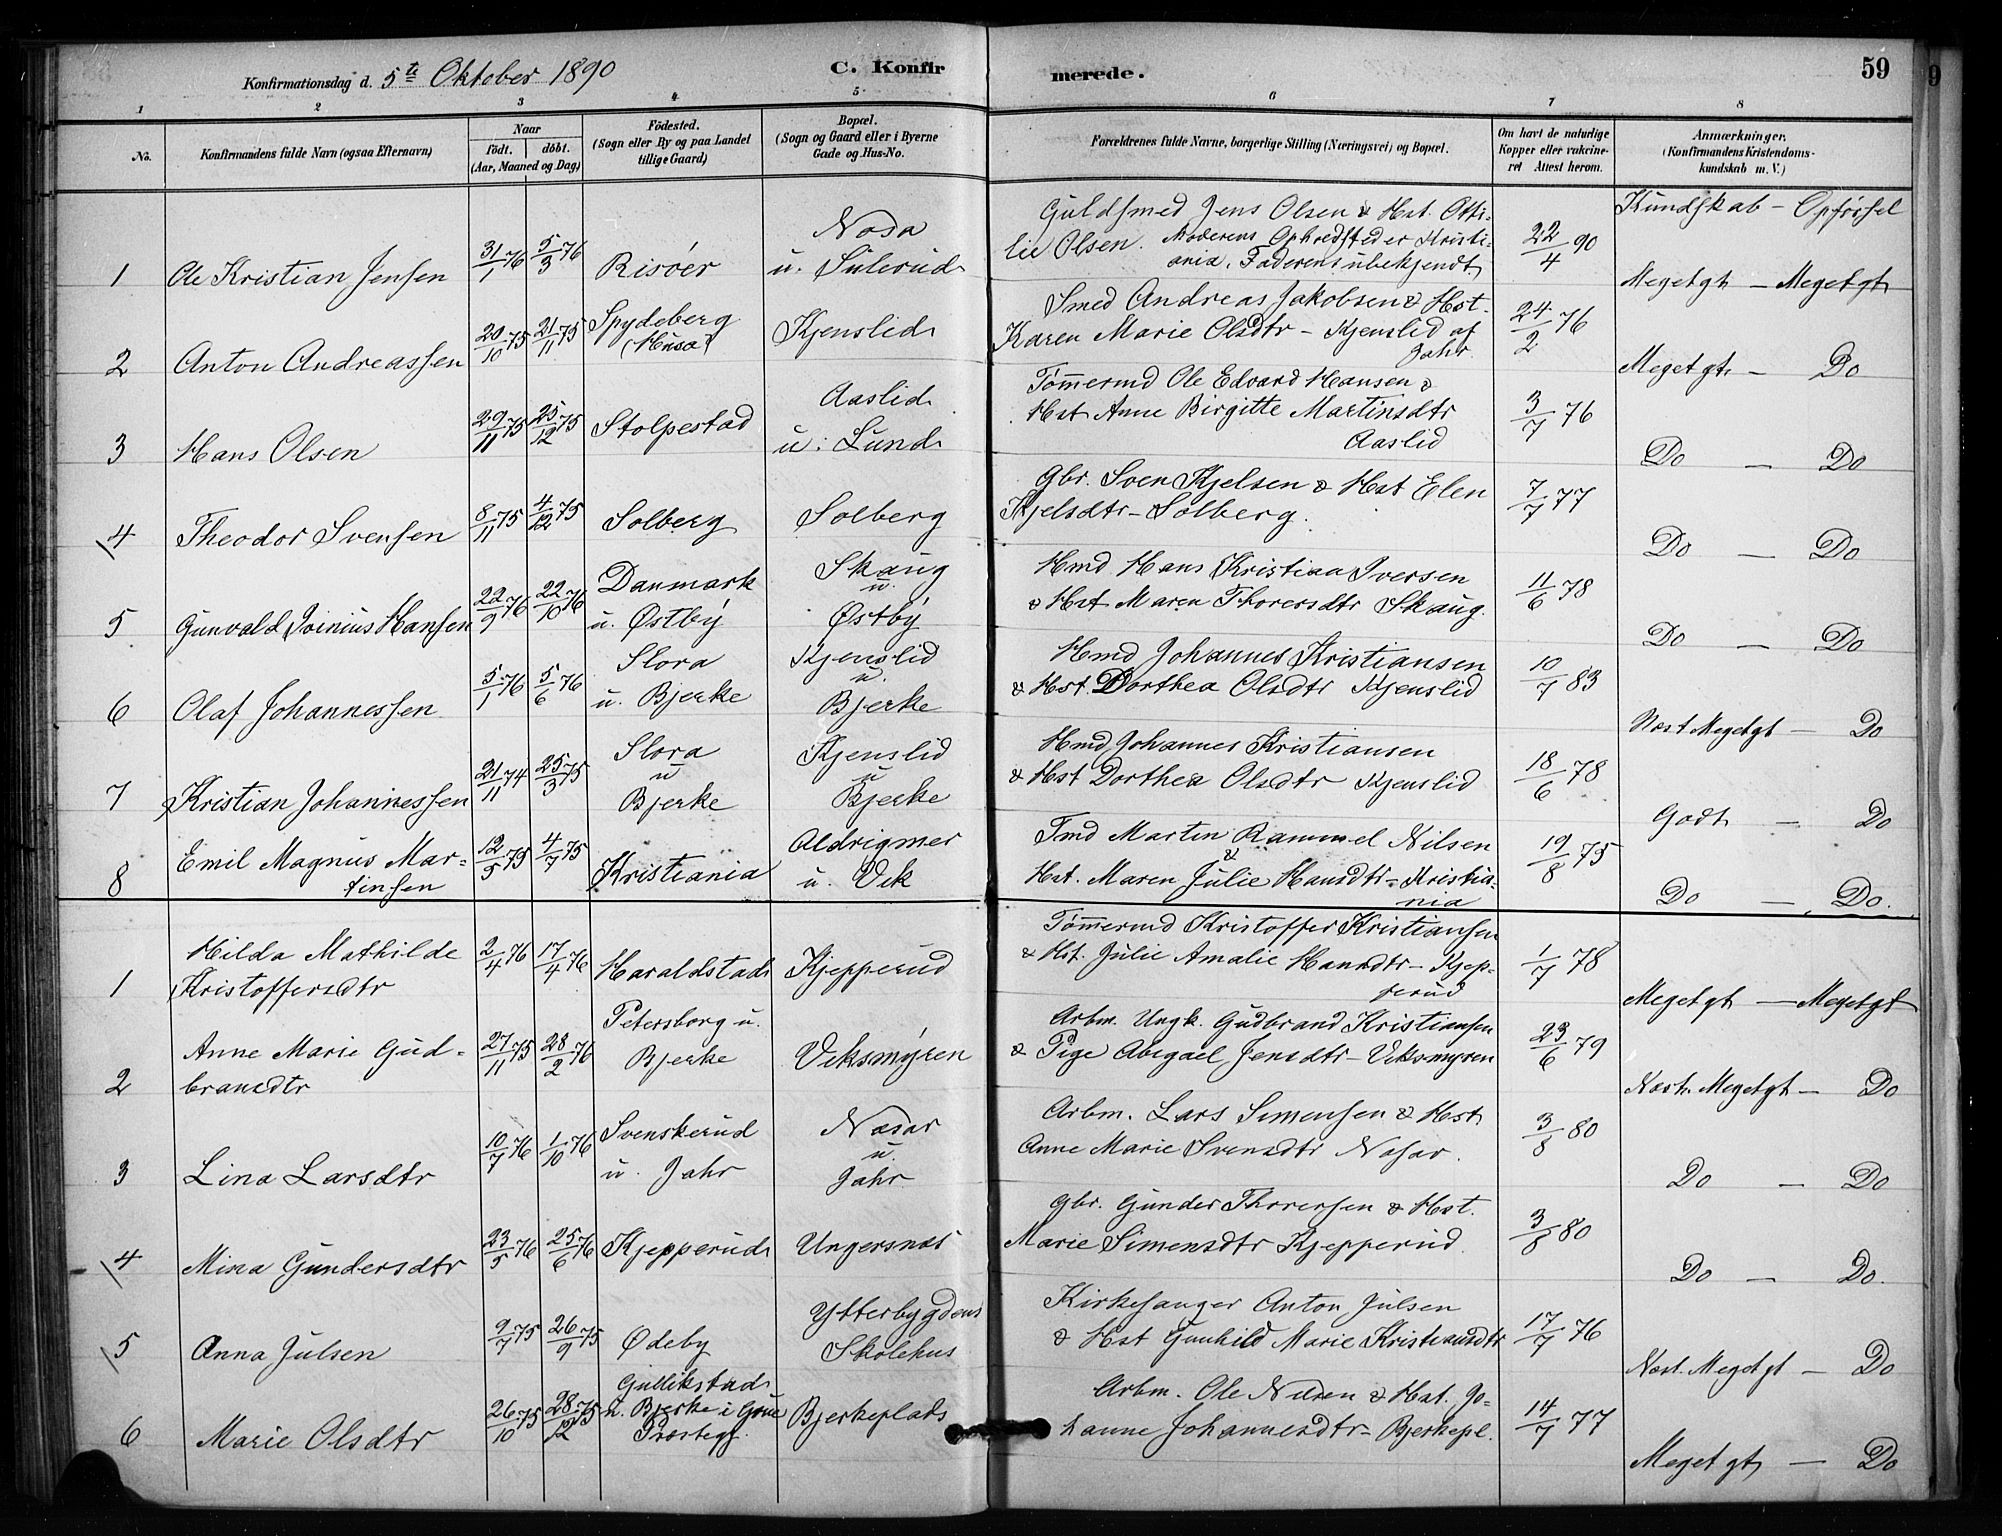 Konfirmationsdag d. 5te Oktober 1890
C. Konfirmerede.
59
1 2 3 4 5 6 7 8
No.
Konfirmandens fulde Navn (ogsaa Efternavn)
Naar
födt. döbt.
(Aar, Maaned og Dag)
Födested.
(Sogn eller By og paa Landet
tillige Gaard)
Bopæl.
(Sogn og Gaard eller i Byerne
Gade og Hus-No.
Forældrenes fulde Navne, borgerlige Stilling (Næringsvei) og Bopæl.
Om havt de naturlige
Kopper eller vakcine-
ret Attest herom.
Anmærkninger.
(Konfirmandens Kristendoms-
kundskab m. V.)
Kundskab - Opförsel
1 Ole Kristian Jensen 31/1 76 5/3 76 Risöer
Nasa
u. Sulerud
Guldsmed Jens Olsen & Hst. Otti-
lie Olsen. Moderens Opholdsted er Kristi-
ania. Faderens ubekjendt
22/4 90
Megetgt - Megetgt
2 Anton Andreassen 20/10 75 21/11 75
Spydeberg
Kjenslid
Smed Andreas Jakobsen & Hst.
Karen Marie Olsdtr - Kjenslid af
Jahr.
24/2 76
Megetgt - Do
3 Hans Olsen 29/11 75 25/12 75 Stolpestad
Aaslid
u. Lund
Tömermd Ole Edvard Hansen &
Hst Anne Birgitte Martinsdtr
Aaslid
3/7 76
Do - Do
4 Theodor Svensen 8/11 75 4/12 75 Solberg Solberg
Gbr. Sven Kjelsen & Hst Elen
Kjelsdtr - Solberg.
7/7 77
Do - Do
5 Gunvald Hansen 22/9 76 22/10 76
Danmark
u. Østby
Skaug
u.
Østby
Hmd Hans Kristian Iversen
& Hst Maren Thorersdtr Skaug.
11/6 78
Do - Do
6 Olaf Johannessen 5/1 76 5/6 76
Slora
u. Bjerke
Kjenslid
u.
Bjerke
Hmd Johannes Kristiansen
& Hst. Dorthea Olsdtr Kjenslid
10/7 83
Næst Megetgt - Do
7 Kristian Johannessen 21/11 74 25/3 75
Slora
u
Bjerke
Kjenslid
u
Bjerke
Hmd Johannes Kristiansen
& Hst Dorthea Olsdtr Kjenslid
18/6 78
Godt - Do
8 Emil Magnus Mar-
tinsen
12/5 75 4/7 75 Kristiania
Aldrigmer
u. Vik
Tmd Martin Rammel Nilsen
&
Hst. Maren Julie Hansdtr - Kristia-
nia
19/8 75
Do - Do.
1 Hilda Mathilde
Kristoffersdtr
2/4 76 17/4 76 Haraldstad Kjepperud
Tömermd Kristoffer Kristiansen
& Hst. Julie Amalie Hansdtr - Kjep-
perud
1/7 78
Megetgt - Megetgt
2 Anne Marie Gud-
bransdtr
27/11 75 28/2 76
Petersborg u.
Bjerke
Viksmyren
Arbm. Ungk. Gudbrand Kristiansen
& Pige Abigael Jensdtr - Viksmyren
23/6 79
Næst. Megetgt - Do
3 Lina Larsdtr 10/7 76 1/10 76
Svenskerud
u. Jahr
Nasar
u.
Jahr
Arbm. Lars Simensen & Hst
Anne Marie Svensdtr Nasar.
3/8 80
Do - Do
4 Mina Gundersdtr 23/5 76 25/6 76 Kjepperud Ungersnæs
Gbr. Gunder Thorersen & Hst.
Marie Simensdtr Kjepperud.
3/8 80
Do - Do.
5 Anna Julsen 9/7 75 26/9 75 Ødeby
Ytterbygdens
Skolehus
Kirkesanger Anton Julsen
& Hst Gunhild Marie Kristiansdtr
17/7 76
Næst. Megetgt - Do
6 Marie Olsdtr 26/10 75 28/12 75
Gullikstad
u. Bjerke i Grue
Præstegj.
Bjerkeplads
Arbm. Ole Nilsen & Hst. Jo-
hanne Johannesdtr - Bjerkepl.
14/7 77
Megetgt - Do